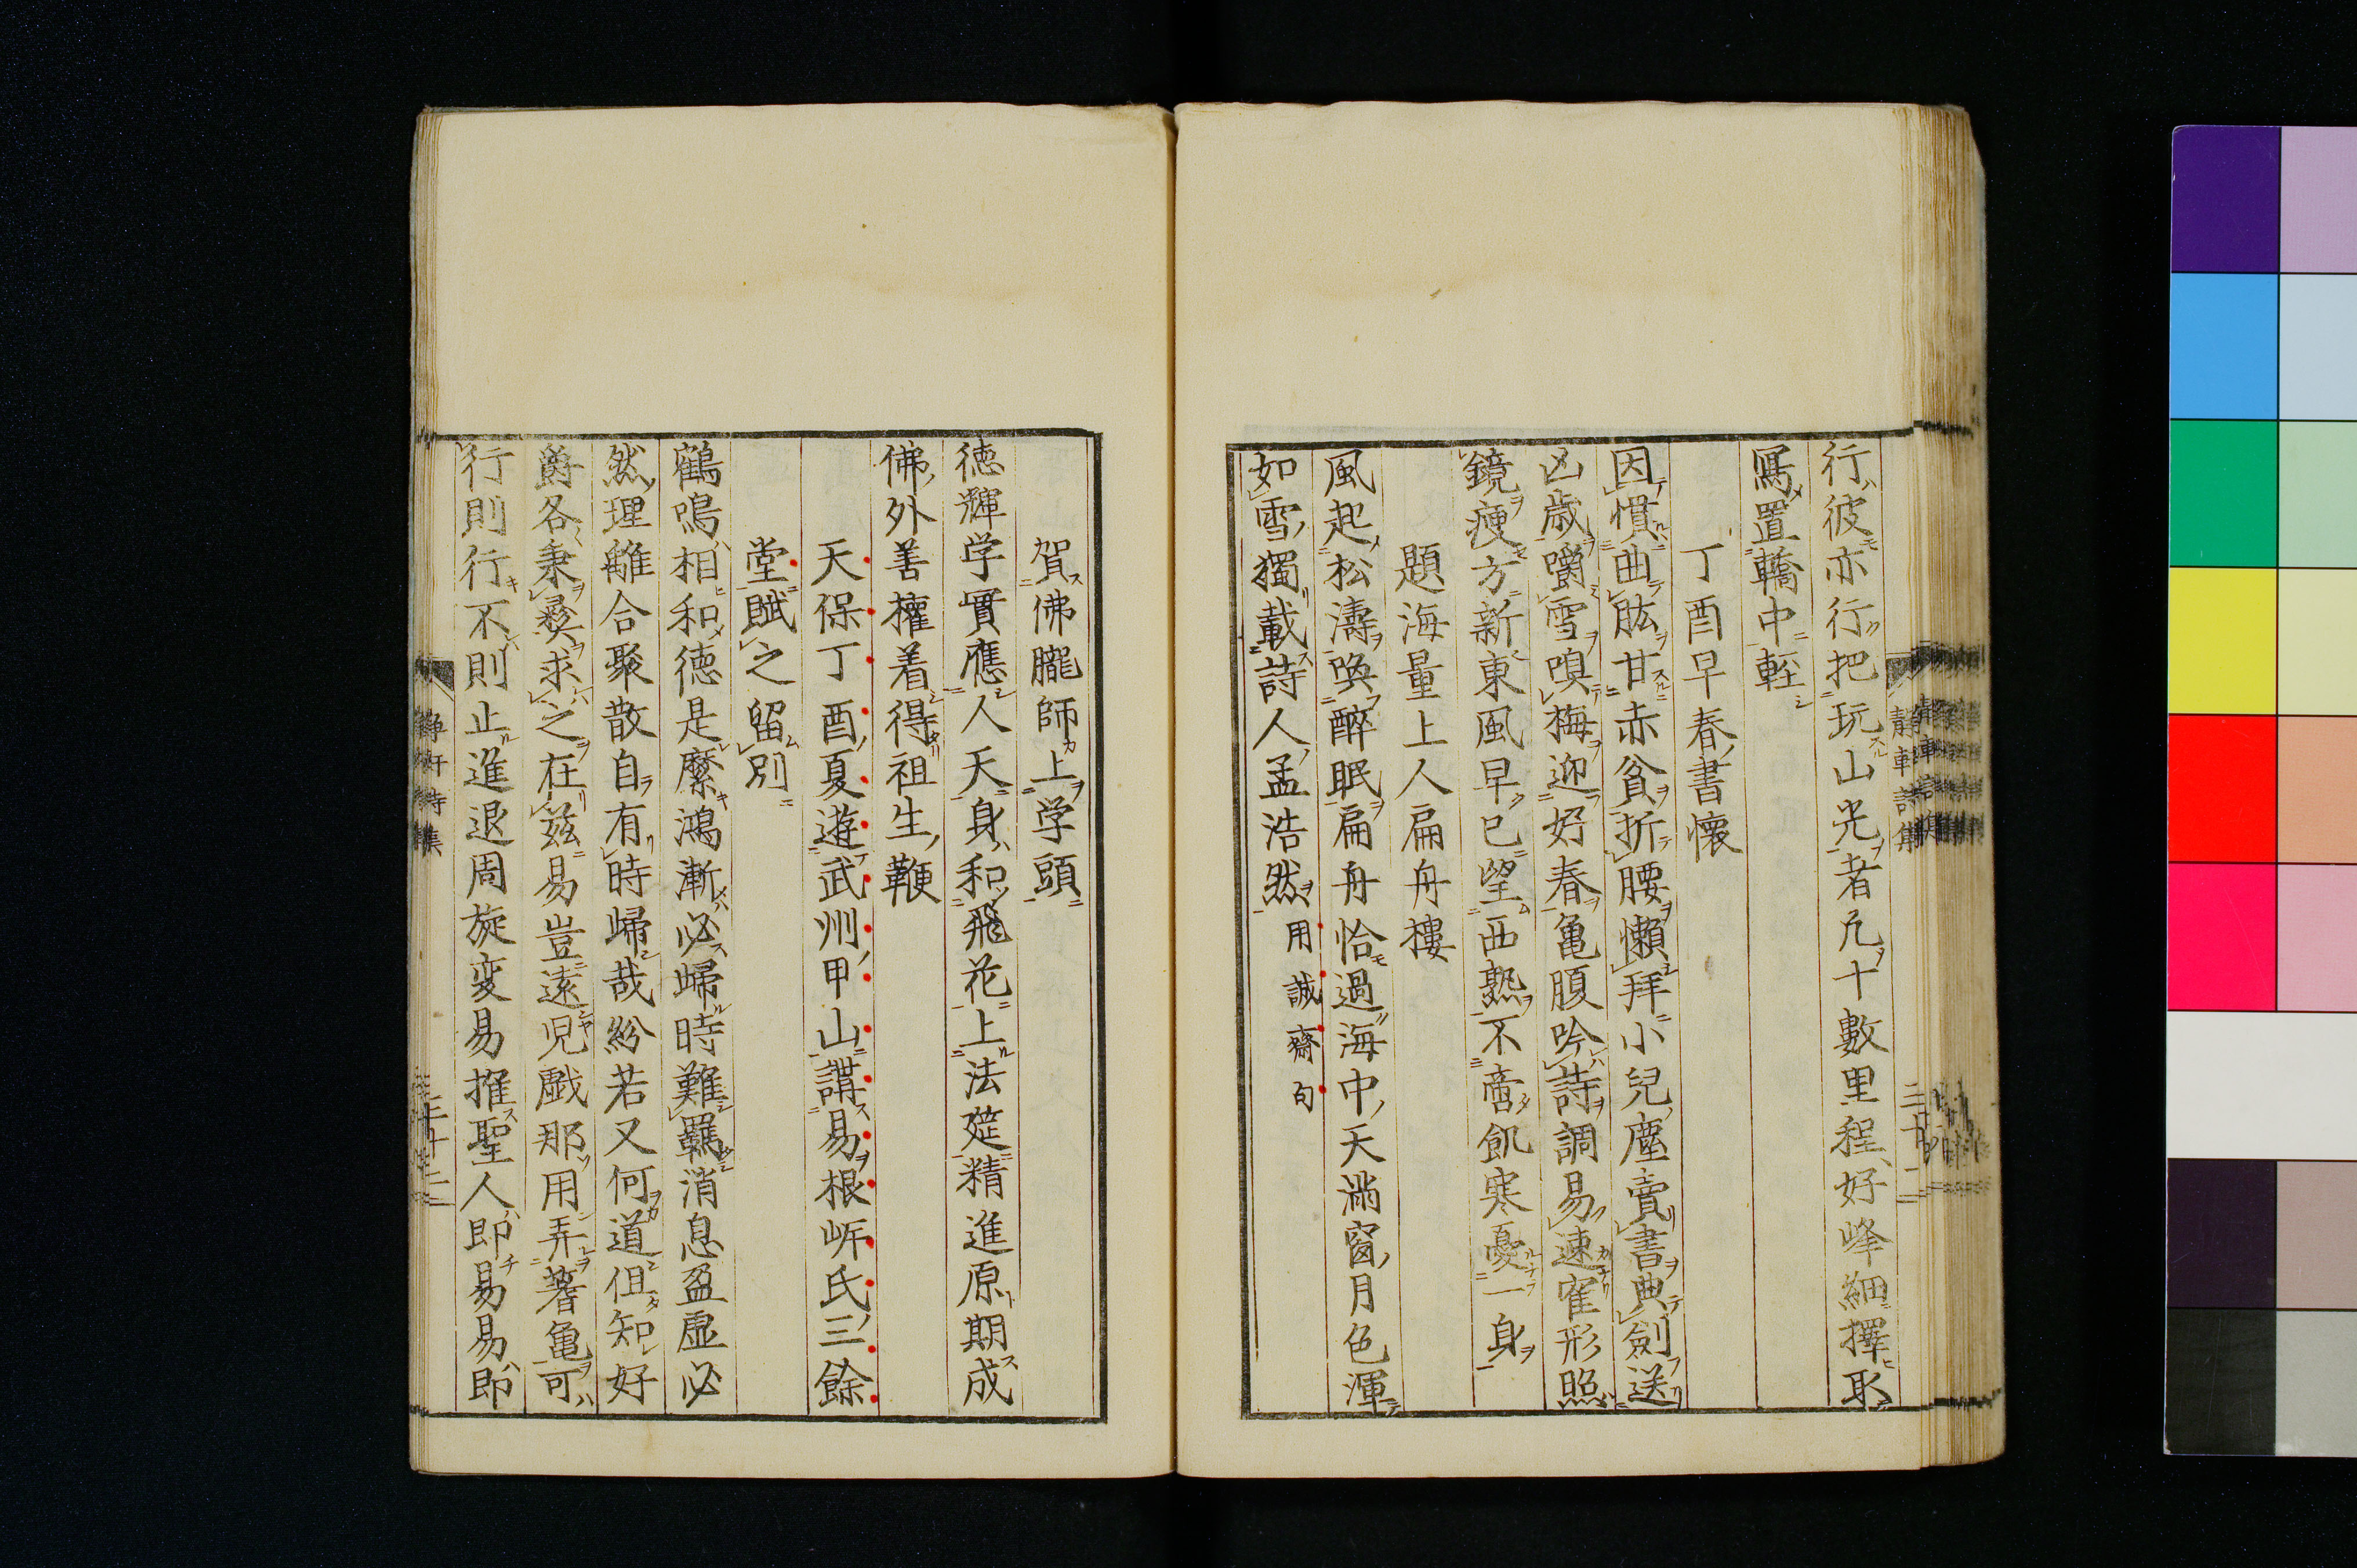 行彼亦行把玩山光者凡十數里程好峰細擇取
寫置轎中輊
丁酉早春書懷
因慣曲肱甘赤貧折腰懶拜小兒塵賣書典劍送
凶歳嚼雪嗅梅迎好春亀腹吟詩調易速寉形照
鏡痩方新東風早已望西熟不啻飢寒憂一身
題海量上人扁舟樓
風起松濤喚醉眠扁舟恰過海中天滿窗月色渾
如雪獨載詩人孟浩然用誠齋句
賀佛朧師上学頭
徳輝学實應人天身和飛花上法筵精進原期成
佛外善權着得祖生鞭
天保丁酉夏遊武州甲山講易根岍氏三餘
堂賦之留別
鶴鳴相和徳是縻鴻漸必歸時難羈消息盈虚必
然理離合聚散自有時歸哉紛若又何道但知好
爵各秉彜求之在兹易豈遠児戯那用弄蓍亀可
行則行不則止進退周旋変易推聖人即易易即